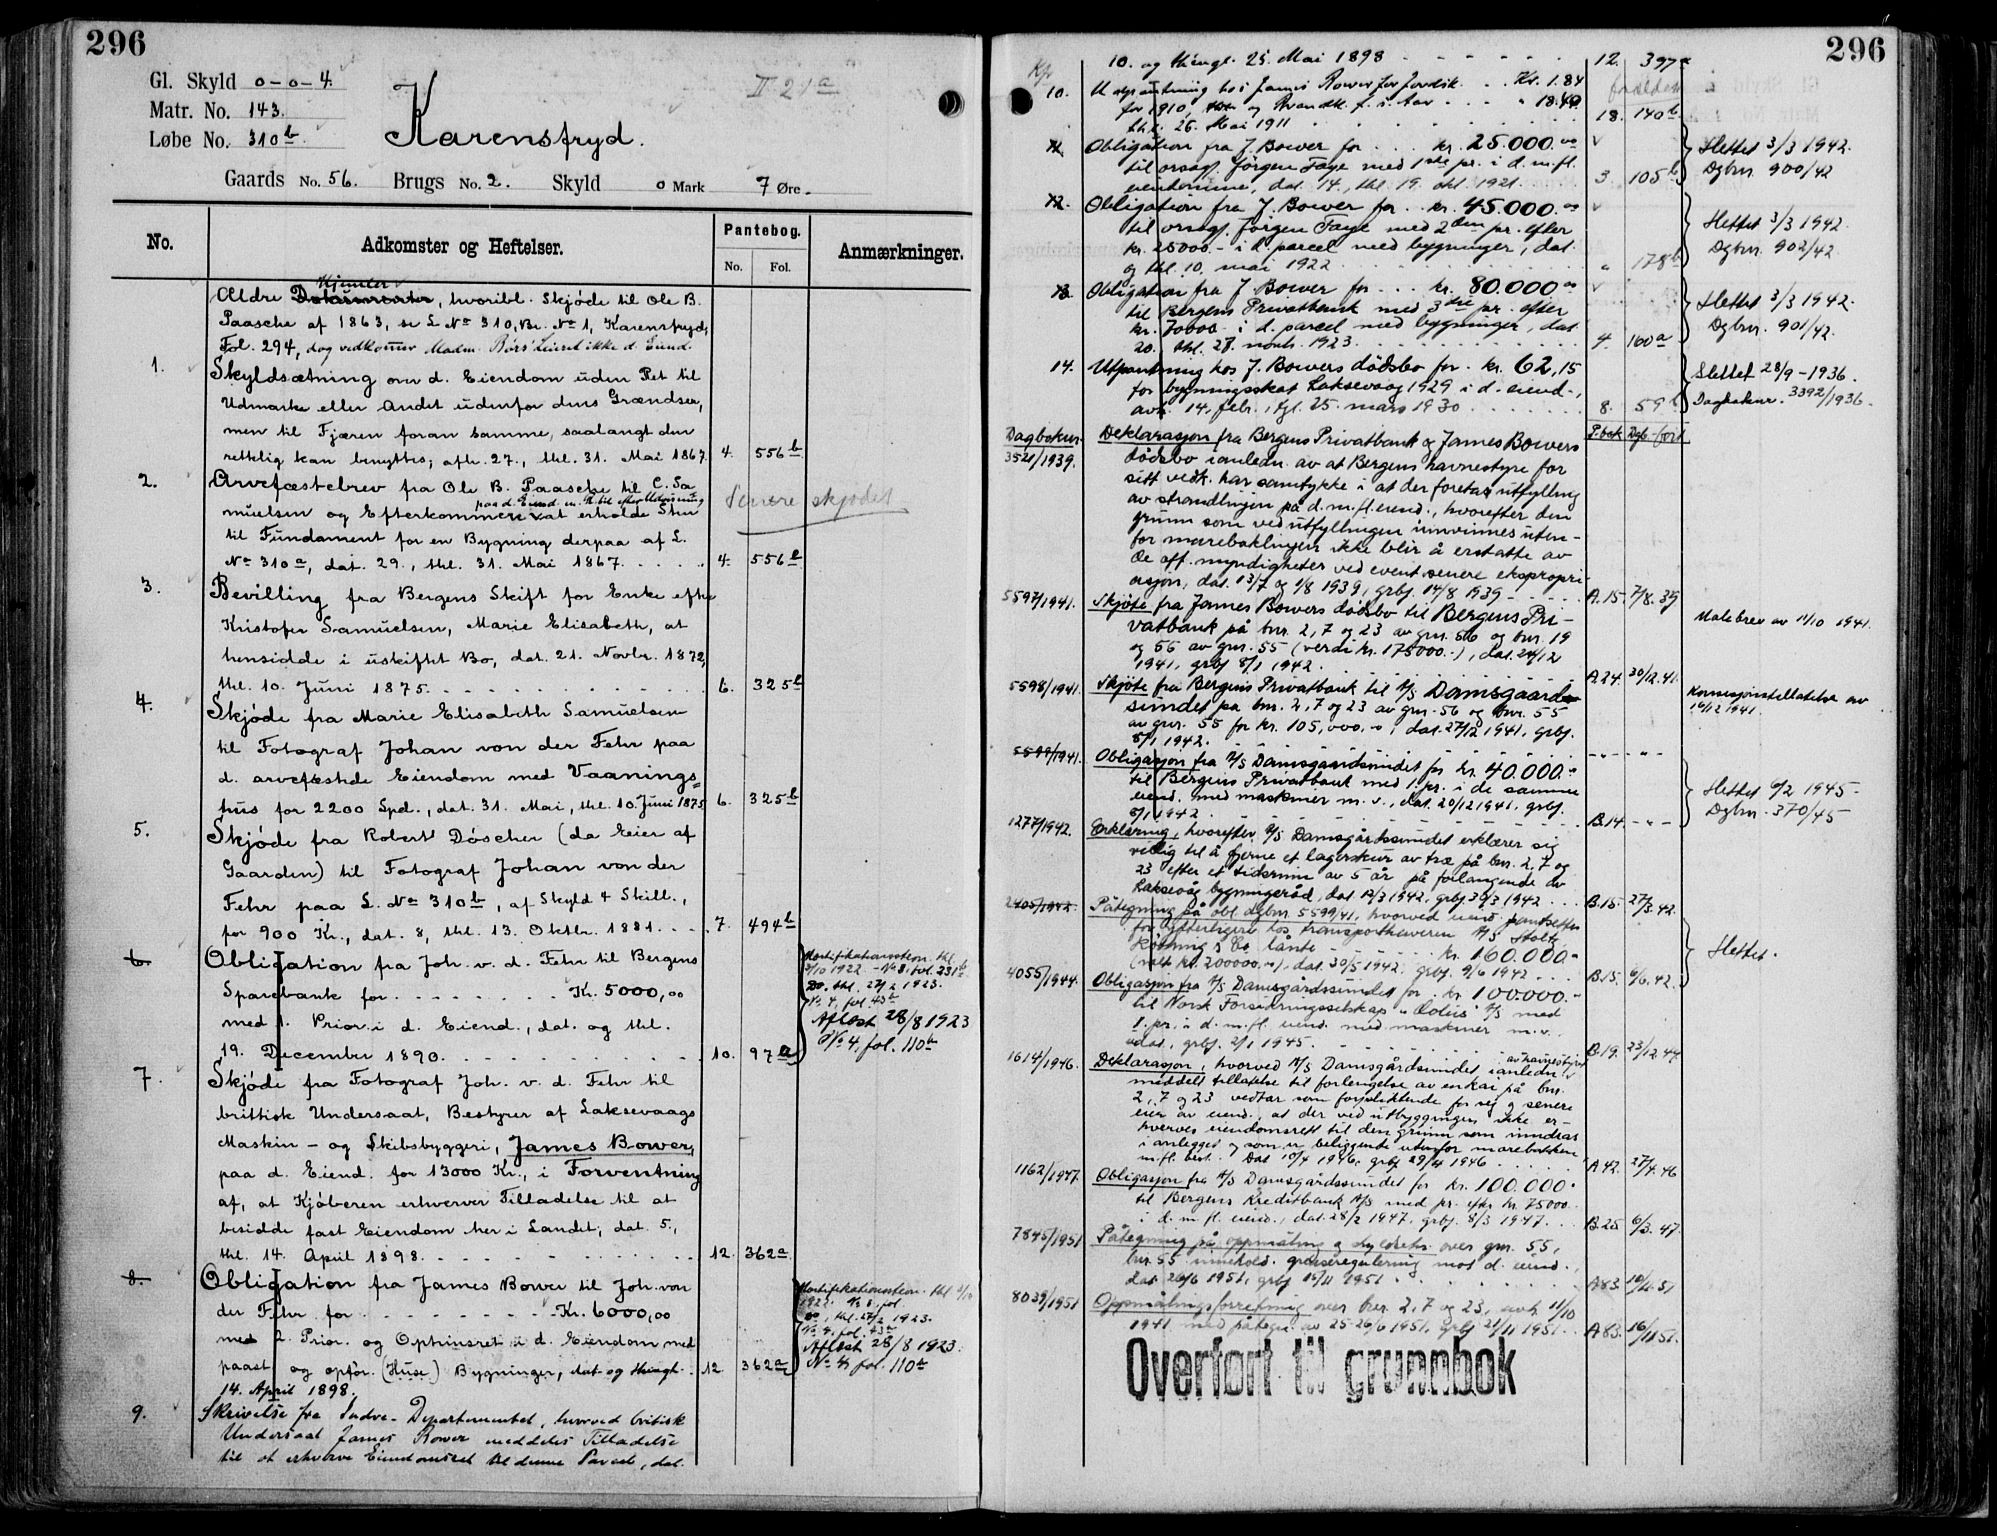 296
Gl. Skyld 0-0-4.
Matr. No. 143.
Løbe No. 310b.
II 21a
Karensfryd.
Gaards No. 56. Brugs No. 2. Skyld 0 Mark 7 Øre.
No. Adkomster og Heftelser. Pantebog. Anmærkninger.
No. Fol.
Hjemler
Ældre Dokumenter, hvoribl. Skjøde til Ole B.
Paasche af 1863, se L No 310, Br. No 1, Karensfryd,
Fol. 294, dog vedkommer Madm. Börs' Leieret ikke d. Eiend.
1. Skyldsætning om d. Eiendom uden Ret til
Udmarke eller Andet udenfor dens Grændser,
men til Fjæren foran samme, saalangt den
rettelig kan benyttes; afh. 27., thl. 31. Mai 1867. 4. 556b
2. Arvefæstebrev fra Ole B. Paasche til C. Sa
muelsen og Efterkommere paa d. Eiend. m. R. til efter Udvisning at erholde Sten
Senere skjødet
til Fundament for en Bygning derpaa af L.
No 310a, dat. 29., thl. 31. Mai 1867. 4. 556b
3. Bevilling fra Bergens Skift for Enke efter
Kristofer Samuelsen, Marie Elisabeth, at
hensidde i uskiftet Bo, dat. 21. Novbr. 1872,
thl. 10. Juni 1875. 6. 325b
4. Skjøde fra Marie Elisabeth Samuelsen
til Fotograf Johan von der Fehr paa
d. arvefæstede Eiendom med Vaanings=
hus for 2200 Spd., dat. 31. Mai, thl. 10. Juni 1875 6. 325b
5. Skjøde fra Robert Döscher (da Eier af
Gaarden) til Fotograf Johan von der
Fehr paa L. No 310b, af Skyld 4 Skill.,
for 900 Kr., dat. 8, thl. 13. Oktbr. 1881. 7. 494b
6. Obligation fra Joh. v. d. Fehr til Bergens
Sparebank for Kr. 5000,00
med 1. Prior. i d. Eiend., dat. og thl.
19. December 1890. 10. 97a
Mortifikationsstevn. thl.
3/10 1922 - No 3. fol. 231b
Do. thl. 27/2 1923.
No 4, fol. 43b
Aflæst 28/8 1923
No 4, fol. 110b
7. Skjøde fra Fotograf Joh. v. d. Fehr til
brittisk Undersaat, Bestyrer af Laksevaags
Maskin- og Skibsbyggeri, James Bower,
paa d. Eiend. for 13000 Kr., i Forventning
af, at Kjøberen erhverver Tilladelse til at
besidde fast Eiendom her i Landet, dat. 5.,
thl. 14. April 1898. 12. 362a
8. Obligation fra James Bower til Joh. von
der Fehr for Kr. 6000,00
med 2. Prior. og Opbudsret i d. Eiendom med
paast. og opför. (Huse) Bygninger, dat. og thingl. 12. 362a
14. April 1898.
Mortifikationsstevn. thl. 3/10
1922. No 3. fol.
Do, thl. 27/2 1923.
No 4. fol. 43b
Aflæst 28/8 1923.
No 4, fol. 110b
9. Skrivelse fra Indre-Departementet, hvorved britisk
Undersaat James Bower meddeles Tilladelse
til at erhverve Eiendomsret til denne Parcel, dat.
296
10. og thingl. 25. Mai 1898 12. 397a
10. Udpantning hos James Bower for Jordsk. Kr. 1.84
for 1910, og Brandk. f. s. Aar " 18.40
thl. 26. Mai 1911 18. 140b
forældet
11. Obligation fra J. Bower for kr. 25.000.00
til orsagf. Jörgen Faye med 1ste pr. i d. m. fl.
eiendomme, dat. 14., thl. 19. okt. 1921. 3. 105b
Slettet 3/3 1942.
Dgbnr. 900/42
12. Obligation fra J. Bower for kr. 45.000.00
til orsagf. Jörgen Faye med 2den pr. efter
kr. 25000.- i d. parcel med bygninger, dat.
og thl. 10. mai 1922 " 178b
Slettet 3/3 1942
Dgbnr. 902/42.
13. Obligation fra J. Bower for kr. 80.000.00
til Bergens Privatbank med 3die pr. efter
kr. 70000.- i d. parcel med bygninger, dat.
20. thl. 27. novb. 1923. 4. 160a
Slettet 3/3 1942.
Dgbnr. 901/42.
14. Utpantning hos J. Bowers dödsbo for kr. 62,15
for bygningsskat Laksevaag 1929 i d. eiend.,
avh. 14. febr., tgl. 25. mars 1930 8. 59b
Slettet 28/9-1936.
Dagboknr. 3392/1936.
Dagboknr. P.bok Dgb.ført
3521/1939. Deklarasjon fra Bergens Privatbank og James Bowers
dödsbo i anledn. av at Bergens havnestyre for
sitt vedk. har samtykke i at der foretas utfylling
av strandlinjen på d. m. fl. eiend., hvorefter den
grunn som ved utfyllingen innvinnes uten-
for marebaklinjen ikke blir å erstatte av
de off. myndigheter ved event. senere ekspropri-
asjon, dat. 13/7 og 1/8 1939, grbf. 14/8 1939 A. 15. 7/8. 39
5597/1941. Skjöte fra James Bowers dödsbo til Bergens Pri-
vatbank på bnr. 2, 7 og 23 av gnr. 56 og bnr. 19
og 56 av gnr. 55 (verdi kr. 175000.-), dat. 24/12
1941, grbf. 8/1 1942. A. 24. 30/12. 41.
Målebrev av 11/10 1941.
5598/1941. Skjöte fra Bergens Privatbank til A/S Damsgaards-
sundet på bnr. 2, 7 og 23 av gnr. 56 og bnr. 55
av gnr. 55 for kr. 105,000.-, dat. 27/12 1941, grbf.
8/1 1942. " - " - " - "
Konsesjonstillatelse av
16/12 1941.
5599/1941. Obligasjon fra A/S Damsgaardsundet for kr. 40.000.-
til Bergens Privatbank med 1. pr. i de samme
eiend. med maskiner m. v., dat. 20/12 1941. grbf.
8/1 1942. B. 14. - " -
Slettet 6/2 1945 -
Dgbnr. 370/45
1277/1942. Erklæring, hvorefter A/S Damsgårdssundet erklærer sig
villig til å fjerne et lagerskur av træ på bnr. 2, 7 og
23 efter et tidsrum av 5 år på forlangende av
Laksevåg bygningsråd, dat. 12/3 1942. grbf. 30/3 1942 B. 15. 27/3. 42.
2405/1942. Påtegning på obl. dgbnr. 5599/41, hvorved eiend. pantsettes
for ytterligere hos transporthaveren A/S Stoltz,
Röthing & Co lånte kr. 160.000.-
(ialt kr. 200000.-), dat. 30/5 1942, grbf. 9/6 1942 B. 15. 6/6. 42.
Slettet.
4055/1944. Obligasjon fra A/S Damsgårdssundet for kr. 100.000.-
til Norsk Forsikringsselskap "Æolus" A/S med
1. pr. i d. m. fl. eiend. med maskiner m. v.
udat., grbf. 2/1 1945. B. 19. 23/12. 44.
1614/1946. Deklarasjon, hvorved A/S Damsgårdssundet i anledn. av havnestyret
meddelt tillatelse til forlengelse av en kai på bnr.
2, 7 og 23 vedtar som forpliktende for seg og senere
eier av eiend., at der ved utbyggingen ikke er-
hverves eiendomsrett til den grunn som inndras
i anlegget og som er beliggende utenfor marebakken
m. fl. best. Dat. 10/4 1946. grbf. 29/4 1946 A. 42. 27/4. 46
1162/1947. Obligasjon fra A/S Damsgårdssundet for kr. 100.000.-
til Bergens Kreditbank A/S med pr. efter kr. 75000.-
i d. m. fl. eiend., dat. 28/2 1947. grbf. 8/3 1947. B. 25. 6/3. 47.
7845/1951 Påtegning på oppmåling og skyldsetn. over gnr. 55,
bnr. 55 innehold. grenseregulering mot d. eiend.,
dat. 26/6 1951, grbf. 15/11 1951 A 83. 10/11. 51
8039/1951 Oppmålingsforretning over bnr. 2, 7 og 23, avh. 11/10
1941 med påtegn. av 25-26/6 1951, grbf. 21/11 1951. A 83. 16/11 51.
Overført til grunnbok